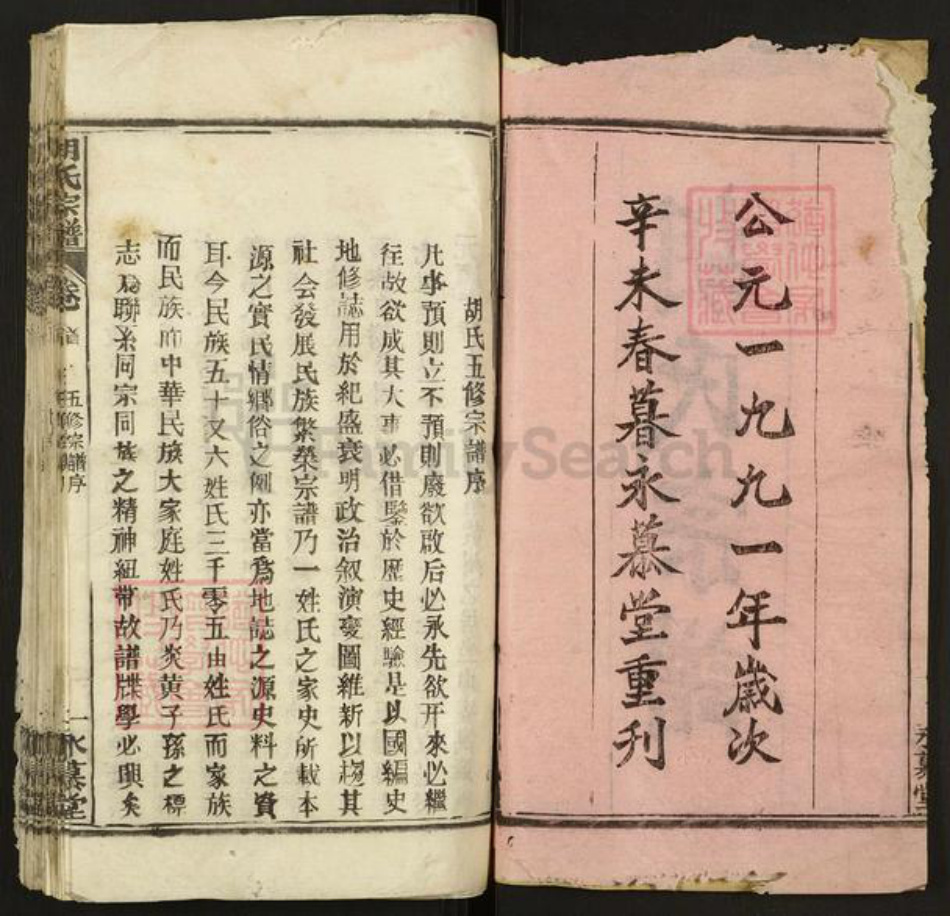 公元一九九一年歲次
辛未春暮永慕堂重刋
永慕堂
胡氏五修宗譜序
凡事預則立不預則廢欲啟后必承先欲开來必繼
往故欲咸其大事必借鑒於歷史經驗是以國編史
地修誌用於紀盛衰明政治叙演變圖維新以趨其
社会發展民族繁榮宗譜乃一姓氏之家史所載本
源之實民情鄉俗之例亦當爲地誌之源史料之資
耳今民族五十又六姓氏三千零五由姓氏而家族
而民族而中華民族大家庭姓氏乃炎黃子孫之標
志爲聯系同宗同族之精神紐帶故譜牒學必興矣
胡氏宗譜
卷
五修宗譜序
一永慕堂
FamilySearch